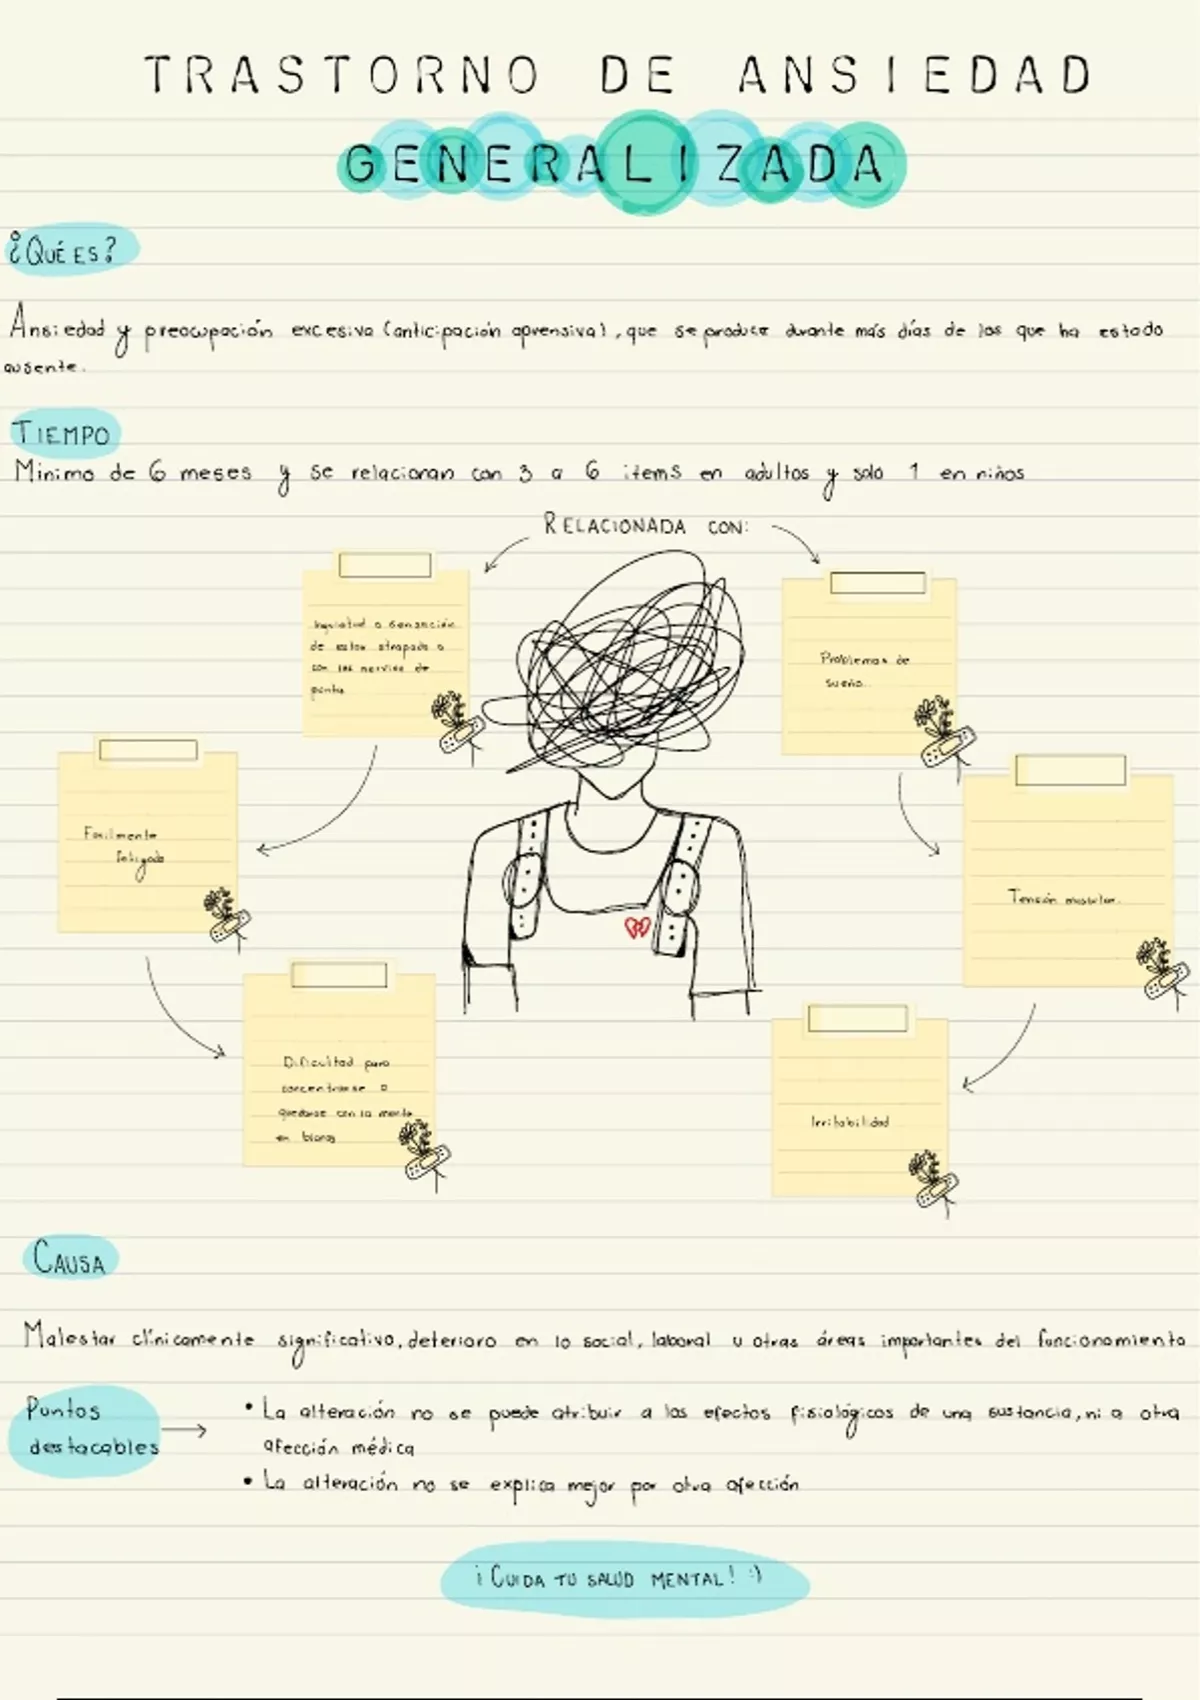 TRASTORNO DE ANSIEDAD
GENERALIZADA
¿QUÉ ES?
Ansiedad y preocupación excesiva (anticipación aprensiva), que se produce durante más días de los que ha estado
ausente.
TIEMPO
Minimo de 6 meses y se relacionan con 3 a 6 items en adultos y solo 1 en niños
RELACIONADA CON:
Inquietud o sensación
de estar atrapado o
con los nervios de
punta
Problemas de
sueño.
Facilmente
fatigado
Tensión muscular.
Dificultad para
concentrarse o
quedarse con la mente
en blanco
Irritabilidad
CAUSA
Malestar clínicamente significativo, deterioro en lo social, laboral u otras áreas importantes del funcionamiento
Puntos
destacables
• La alteración no se puede atribuir a los efectos fisiológicos de una sustancia, ni a otra
afección médica
• La alteración no se explica mejor por otra afección
¡CUIDA TU SALUD MENTAL! :)